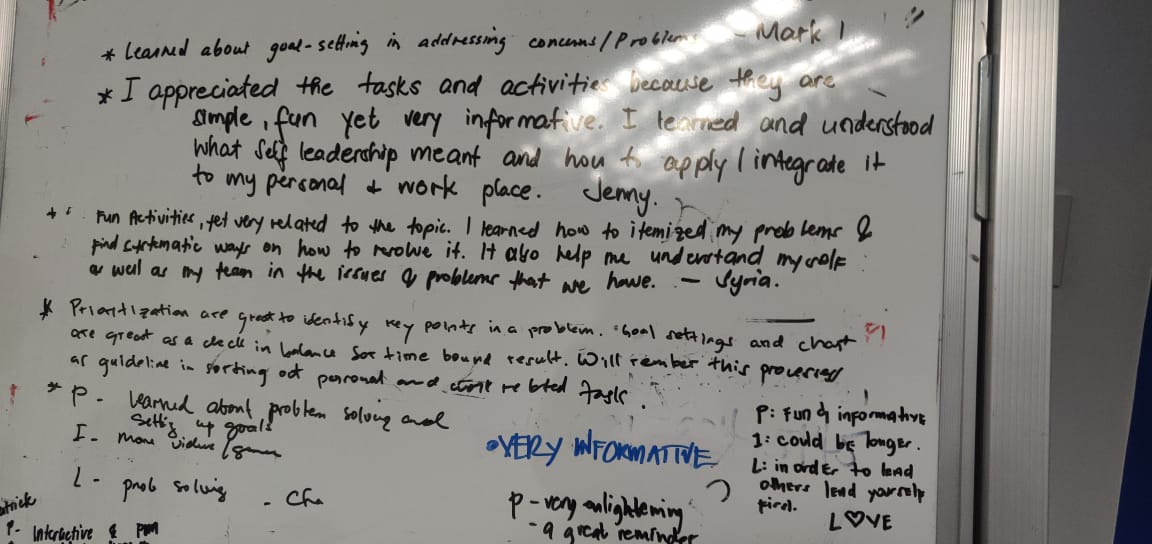 * Learned about goal-setting in addressing concerns/Problems - Mark
* I appreciated the tasks and activities because they are
simple, fun yet very informative. I learned and understood
what self leadership meant and how to apply / integrate it
to my personal & work place. Jenny.
* Fun Activities, yet very related to the topic. I learned how to itemized my problems &
find systematic ways on how to resolve it. It also help me understand myself
as well as my team in the issues & problems that we have. - Syria.
* Prioritization are great to identify key points in a problem. Goal settings and chart
are great as a check in balance for time bound result. Will rember this processes
as guideline in sorting out personal and work related task.
* P - learned about problem solving and
setting up goals
I - more videos /
L - prob solving - Cha
P - Interactive &
• VERY INFORMATIVE
P - very enlightening
- a great reminder
P: Fun & informative
I: could be longer.
L: in order to lead
others lead yourself
first.
L♡VE